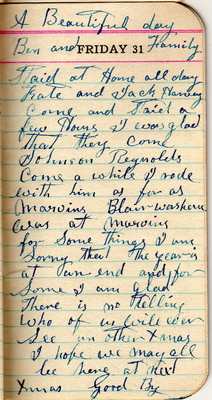 A Beautiful day
Ben and Family
FRIDAY 31
Staid at Home all day
Kate and Jack Harvey
Come and Staid a
few Hours I was glad
that they Come
Johnson Reynolds
Come a while I rode
with him as far as
Marvins Blair washeru
was at Marvins
for Some things I am
Sorry that the year is
at an end and for
Some I am glad
There is no telling
who of us will ever
See an other Xmas
I hope we may all
be here at next
Xmas Good By